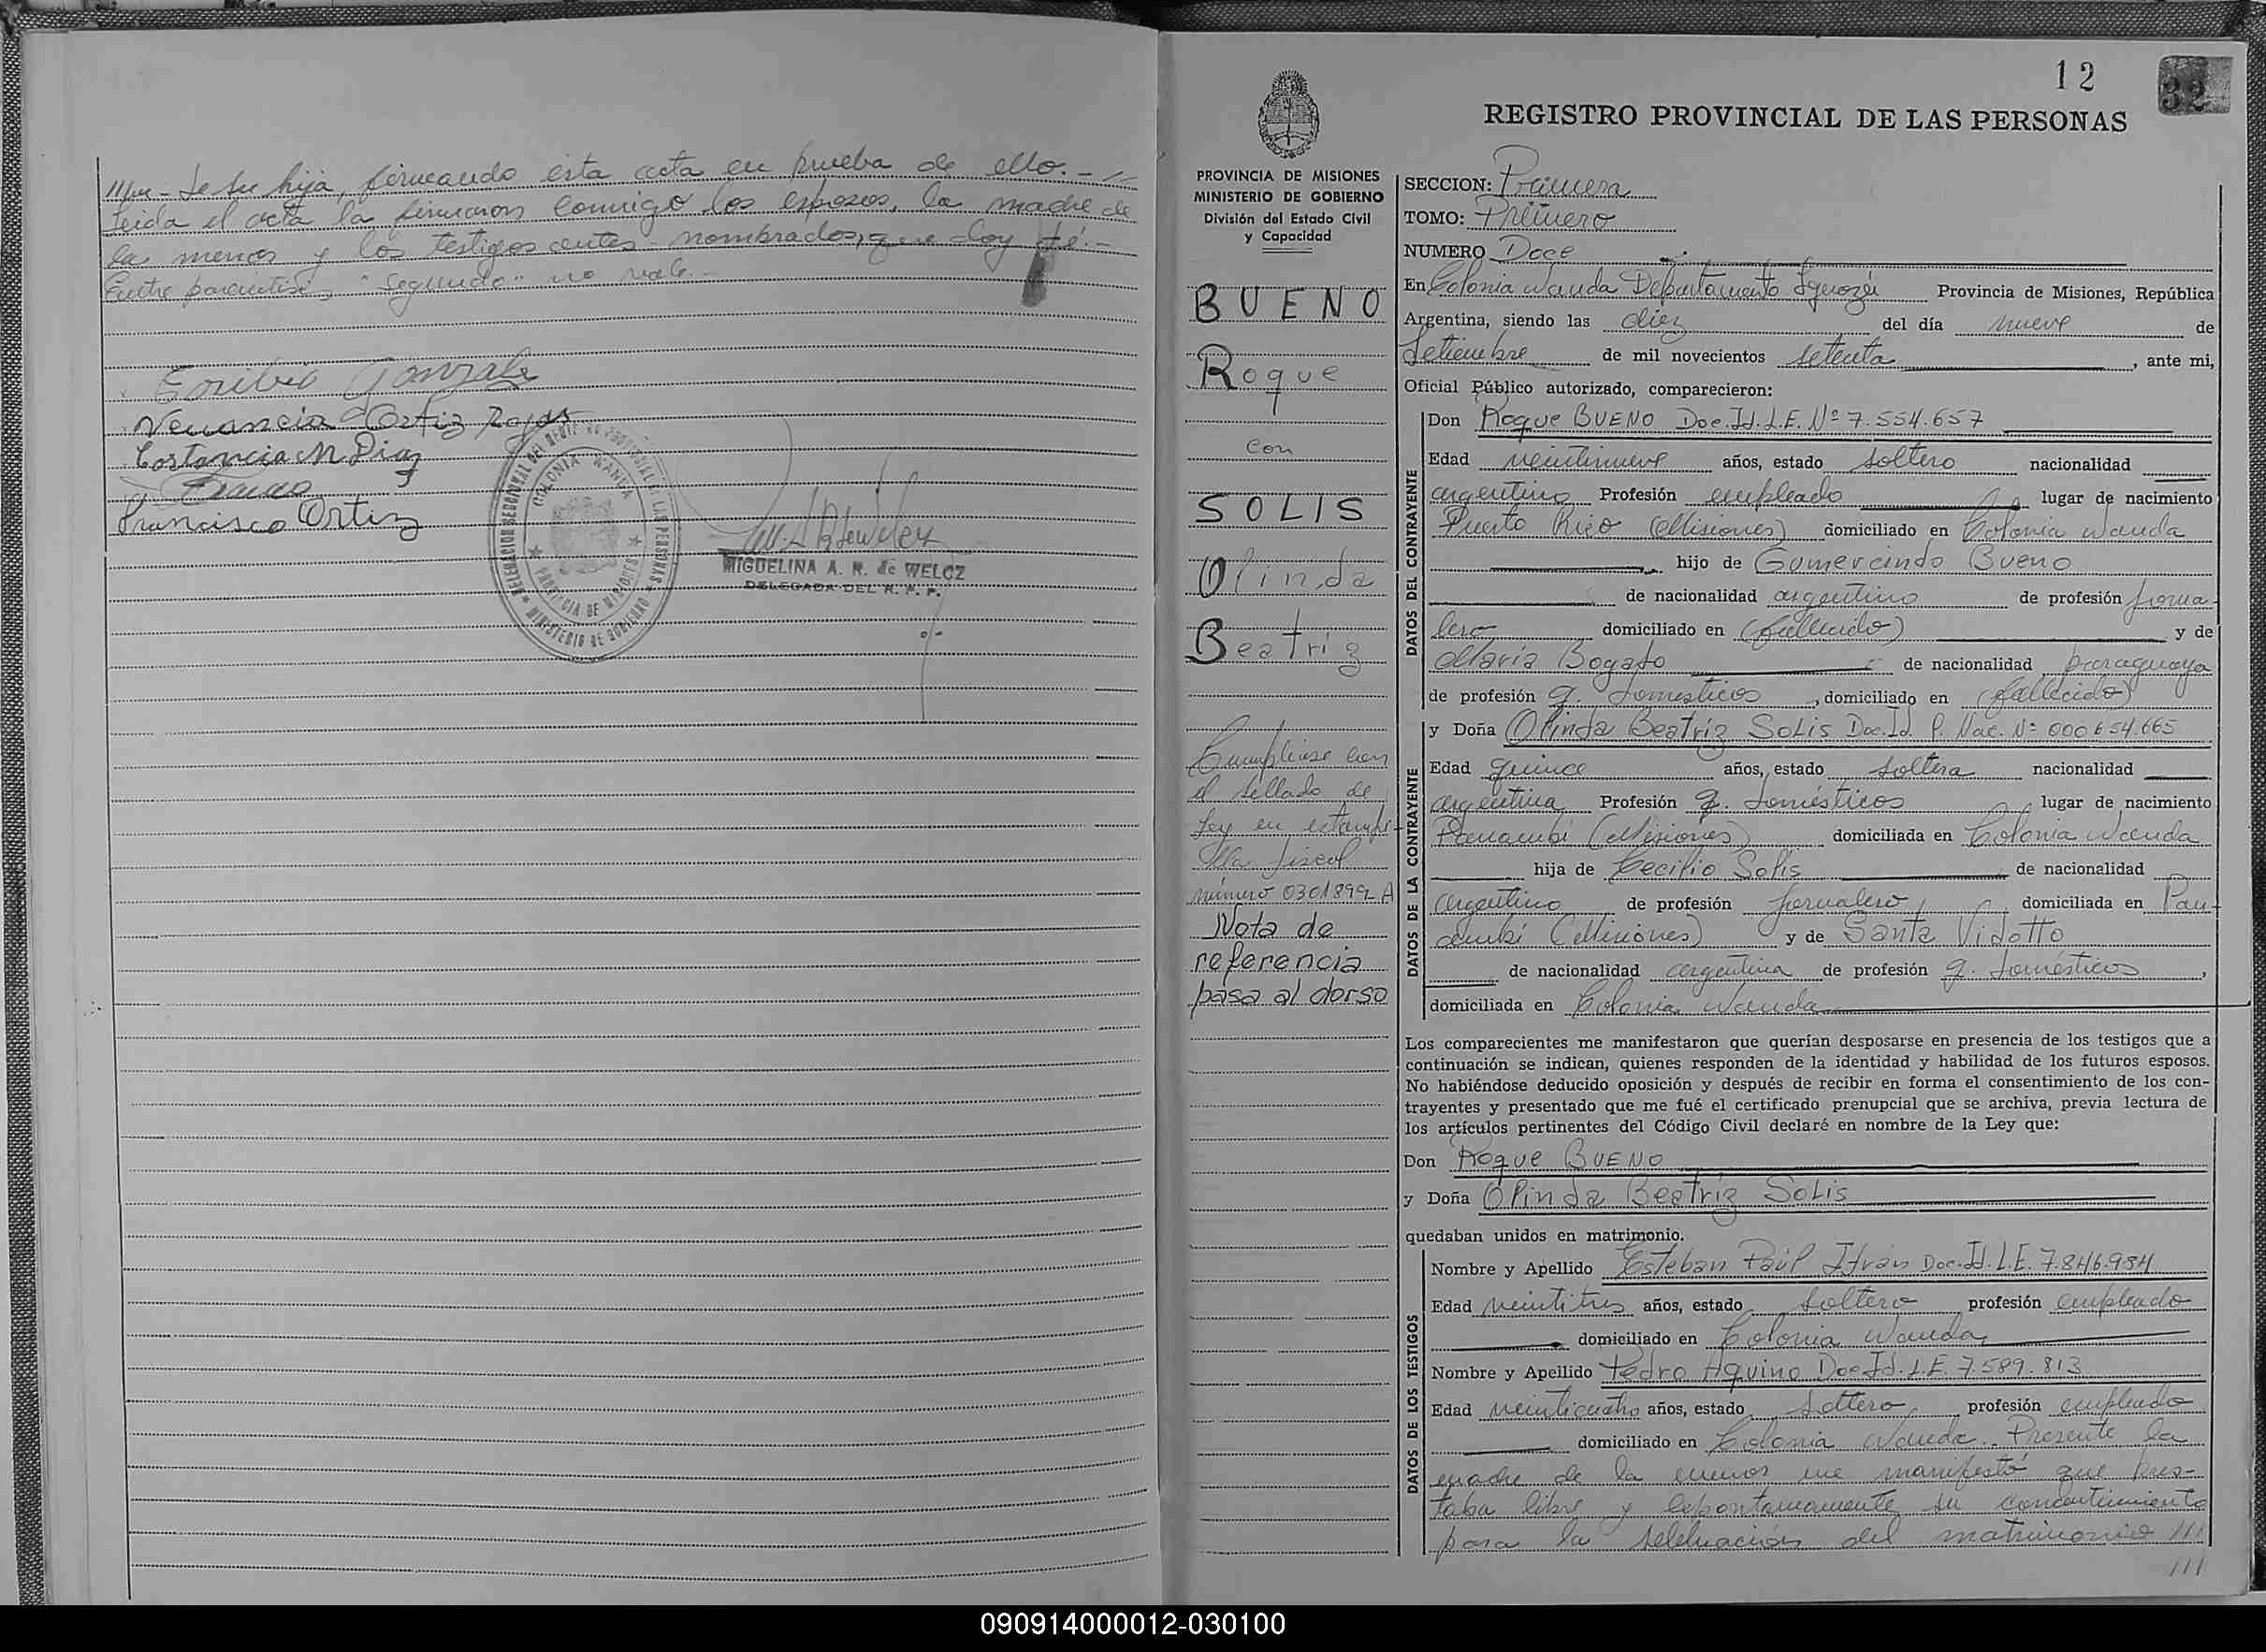 de su hija, firmando esta acta en prueba de ello.-
Leida el acta la firmaron conmigo los esposos, la madre de
la menor y los testigos antes nombrados, que doy fé.-
Entre parentisis "Segundo" no vale.-
Venancia Ortiz Rojas
Costancia M Diaz
Francisco Ortiz
COLONIA WANDA
PROVINCIA DE MISIONES
MINISTERIO DE GOBIERNO
MIGUELINA A. R. de WELCZ
DELEGADA DEL R. P. P.
12
32
REGISTRO PROVINCIAL DE LAS PERSONAS
PROVINCIA DE MISIONES
MINISTERIO DE GOBIERNO
División del Estado Civil
y Capacidad
BUENO
Roque
con
SOLIS
Olinda
Beatriz
Cumpliose con
el sellado de
Ley en estampi-
lla fiscal
número 0301899 A
Nota de
referencia
pasa al dorso
SECCION: Primera
TOMO: Primero
NUMERO Doce
En Colonia Wanda Departamento Iguazú Provincia de Misiones, República
Argentina, siendo las diez del día nueve de
Setiembre de mil novecientos setenta, ante mi,
Oficial Público autorizado, comparecieron:
DATOS DEL CONTRAYENTE
Don Roque BUENO Doc.Id.L.E. Nº 7.554.657
Edad veintinueve años, estado soltero nacionalidad
argentino Profesión empleado lugar de nacimiento
Puerto Rico (Misiones) domiciliado en Colonia Wanda
hijo de Gumercindo Bueno
de nacionalidad argentino de profesión jorna-
lero domiciliado en (fallecido) y de
María Bogado de nacionalidad paraguaya
de profesión q. domesticos, domiciliado en (fallecido)
DATOS DE LA CONTRAYENTE
y Doña Olinda Beatriz SOLIS Doc.Id. P. Nac. Nº 000654.665
Edad quince años, estado soltera nacionalidad
argentina Profesión q. domésticos lugar de nacimiento
Panambí (Misiones) domiciliada en Colonia Wanda
hija de Cecilio Solis de nacionalidad
argentino de profesión jornalero domiciliada en Pan-
ambí (Misiones) y de Santa Vidotto
de nacionalidad argentina de profesión q. domésticos,
domiciliada en Colonia Wanda
Los comparecientes me manifestaron que querían desposarse en presencia de los testigos que a
continuación se indican, quienes responden de la identidad y habilidad de los futuros esposos.
No habiéndose deducido oposición y después de recibir en forma el consentimiento de los con-
trayentes y presentado que me fué el certificado prenupcial que se archiva, previa lectura de
los artículos pertinentes del Código Civil declaré en nombre de la Ley que:
Don Roque BUENO
y Doña Olinda Beatriz SOLIS
quedaban unidos en matrimonio.
DATOS DE LOS TESTIGOS
Nombre y Apellido Esteban Raúl Itrán Doc.Id.L.E. 7.846.984
Edad veintitres años, estado soltero profesión empleado
domiciliado en Colonia Wanda
Nombre y Apellido Pedro Aquino Doc Id.L.E. 7.589.813
Edad veinticuatro años, estado soltero profesión empleado
domiciliado en Colonia Wanda. Presente la
madre de la menor me manifestó que pres-
taba libre y espontaneamente su consentimiento
para la celebración del matrimonio ///
///
090914000012-030100